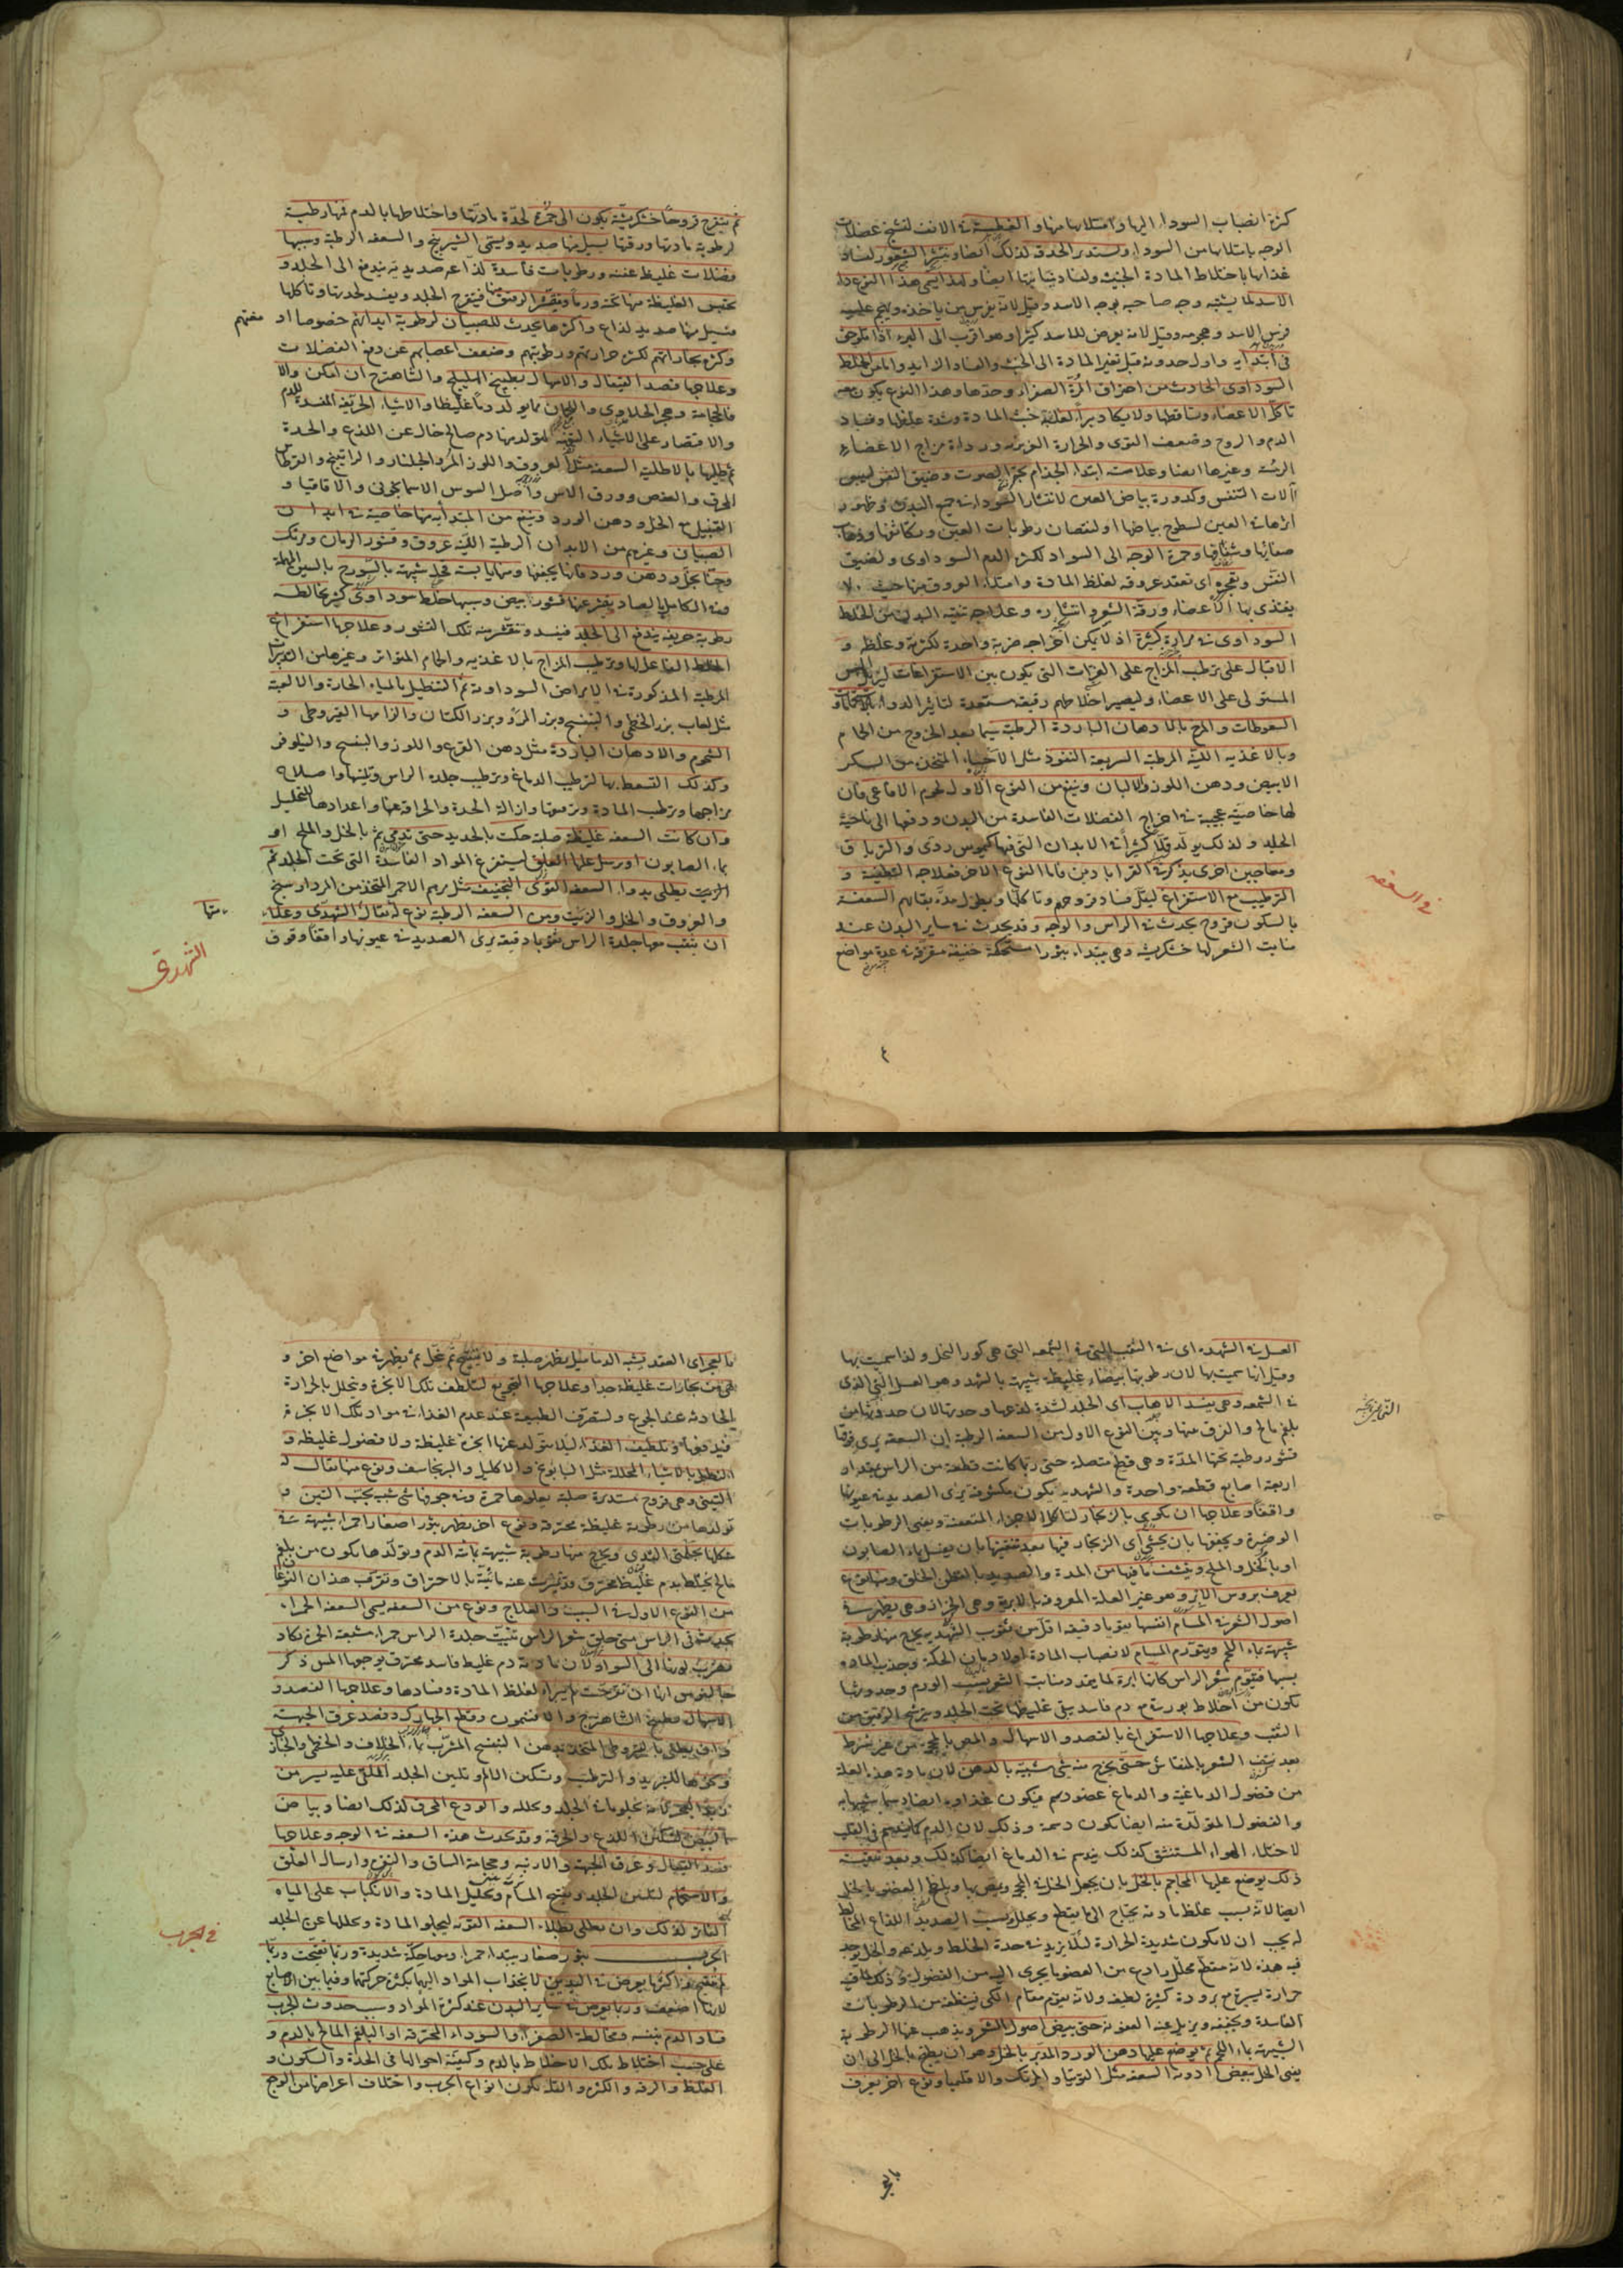 كثرة انصباب السوداء اليها وامتلائها منها والفطسة في الانف لتشنج عضلات
الوجه بامتلائها من السوداء وتستدير الحدقة لذلك ايضا وينتثر الشعور لفساد
غذائها باختلاط المادة الخبيثة ولفساد منابتها ايضا ولهذا يسمى هذا النوع داء
الاسد لما يشبه وجه صاحبه بوجه الاسد وقيل لانه يفترس من ياخذه ويهجم عليه
فرس الاسد وهجومه وقيل لانه يعرض للاسد كثيرا وهو اقرب الى البرء اذا تلوحق
في ابتدائه واول حدوثه قبل تغير المادة الى الخبث والفساد الازيد واما من الخلط
السوداوي الحادث من احتراق المرة الصفراء وحدتها وهذا النوع يكون معه
تاكل الاعضاء وتساقطها ولا يكاد يبرأ لغلبة خبث المادة وشدة غلظها وفساد
الدم والروح وضعف القوى والحرارة الغريزية ورداءة مزاج الاعضاء
الرئيسة وغيرها ايضا وعلامة ابتداء الجذام بحة الصوت وضيق النفس ليبس
آلات التنفس وكدورة بياض العين لانتشار السوداء في جميع البدن وظهور
صفائها وشفافها وحمرة الوجه الى السواد لكثرة الدم السوداوي ولضيق
النفس وتعجر اي تعقد عروقه لغلظ المادة وامتلاء العروق منها حيث لا
يغتذي بها الاعضاء ورقة الشعر وانتثاره وعلاجه تنقية البدن من الخلط
السوداوي في مرار كثيرة اذ لا يمكن اخراجه ضربة واحدة لكثرته وغلظه و
الاقبال على ترطيب المزاج على الفترات التي يكون بين الاستفراغات ليزيل اليبس
المستولي على الاعضاء وليصير اخلاطهم رقيقة مستعدة لتاثير الدواء بالحمامات و
السعوطات والمرخ بالادهان الباردة الرطبة سيما بعد الخروج من الحمام
وبالاغذية اللينة المرطبة السريعة النفوذ مثل الاحساء المتخذ من السكر
الابيض ودهن اللوز والالبان وينفع من النوع الاول لحوم الافاعي فان
لها خاصية عجيبة في اخراج الفضلات الفاسدة من البدن ودفعها الى ناحية
الجلد ولذلك يولد قملا كثيرا في الابدان التي فيها كيموس ردي والترياق
ومعاجين اخرى يذكر في القراباذين واما النوع الاخر فعلاجه التطفية و
الترطيب مع الاستفراغ ليقل فساد قروحهم وتاكلها ويطول مدة بقائهم السعفة
بالسكون قروح يحدث في الراس والوجه وقد يحدث في ساير البدن عند
منابت الشعر لها خشكريشة وهي يبتداء بثورا مستحكة خفيفة متفرقة في عدة مواضع
في السعفه
٤
ثم يتقرح قروحا خشكريشية يكون الى حمرة لحدة مادتها واختلاطها بالدم فمنها رطبة
لرطوبة مادتها ورقتها يسيل منها صديد ويسمى الشيرينج والسعفه الرطبة وسببها
فضلات غليظ عفنة ورطوبات فاسدة لذاعه صديدية يندفع الى الجلد و
يحتبس الغليظة منها تحته وربما وينفذ الرقيق منها فيتقرح الجلد ويفسد لحدتها وتاكلها
فيسيل منها صديد لذاع واكثرها يحدث للصبيان لرطوبة ابدانهم خصوصا اد
مغتهم
وكثرة بخاراتهم لكثرة حرارتهم ورطوبتهم وضعف اعصابهم عن دفع الفضلات
وعلاجها فصد القيفال والاسهال بطبيخ الهليلج والشاهترج ان امكن والا
فالحجامة وهجر الحلاوي واللحمان مما يولد دما غليظا والاشياء الحريفة المفسدة للدم
والاقتصار على الاشياء التفهة ليتولد منها دم صالح خال عن اللذع والحدة
ثم يطليها بالاطلية السعفة مثل العروق واللوز المر والجلنار والراتينج والقرطاس
المحرق والعفص وورق الاس واصل السوس الاسمانجوني والاقاقيا و
القنبيل مع الخل ودهن الورد وينفع من المبتدأة منها خاصة في ابدان
الصبيان وغيرهم من الابدان الرطبة اللينة عروق وقشور الرمان ومرتك
وحنا بخل ودهن ورد فانها يجففها ومنها يابسة قحلة شبيهة بالسورج بالسين المهملة
وفي الكامل بالصاد يقشر عنها قشور ابيض وسببها خلط سوداوي كثير يخالطه
رطوبة حريفة يندفع الى الجلد فيفسد وتتقشر منه تلك القشور وعلاجها استفراغ
الخلط الفاعل لها وترطيب المزاج بالاغذية والحمام المتواتر وغيرها من التدبير
المرطبة المذكورة في الامراض السوداوية ثم التنطيل بالمياه الحارة والالعبة
مثل لعاب بزر الخطمي والبنفسج وبزر المرو وبزر الكتان والزامها القيروطي و
الشحوم والادهان الباردة مثل دهن القرع واللوز والبنفسج والنيلوفر
وكذلك التسعط بها لترطيب الدماغ وترطيب جلدة الراس وتليينها واصلاح
مزاجها وترطيب المادة وترقيقها وازالة الحدة والحرافة عنها واعدادها للتحليل
وان كانت السعفه غليظة صلبة حكت بالحديد حتى تدمي ثم بالخل والملح او
بماء الصابون او يرسل عليها العلق ليستفرغ المواد الفاسدة التي تحت الجلد ثم
الزيت يطلى بدواء السعفه القوي التجفيف مثل مرهم الاحمر المتخذ من المرداسنج
والعروق والخل والزيت ومن السعفه الرطبة نوع يقال الشهدي وعلاء
متها
ان يثقب معها جلدة الراس ثقوبا دقيقة يرى الصديد في عيونها واقفا وقوف
الشهدى
العسل في الشهدة اي في الثقب التي في الشمعه التي هي كور النحل ولذا سميت بها
وقيل انها سميت بها لان رطوبتها بيضاء غليظة شبيهة بالشهد وهو العسل النقي الذي
في الشمعه وهي يفسد الاهاب اي الجلد لشدة لذعها وحدتها لان حدوثها من
بلغم مالح والفرق بينها وبين النوع الاول من السعفه الرطبة ان السعفة يرى فوقها
قشور رطبة تحتها المدة وهي قطع متصلة حتى ربما كانت قطعة من الراس بمقدار
اربعة اصابع قطعة واحدة والشهدية يكون مكشوفة يرى الصديد في عيونها
واقفا وعلاجها ان يكوى بالزنجار لتاكل الاجزاء المتعفنة ويفني الرطوبات
الوضرة ويجففها بان يحشى اي الزنجار فيها بعد تنقيتها بان يغسل بماء الصابون
او بالخل والملح وينشف ما فيها من المدة والصديد بالقطن الخلق ومنها نوع
يعرف بروس الابر وهو غير العلة المعروفة بالابرية وهي الحزاز وهي يظهر في
اصول الشعر في المسام انفسها ثقوبا دقيقة اقل من ثقوب الشهدية يخرج منها رطوبة
شبيهة بماء اللحم ويتورم المسام لانصباب المادة اولا ولان الحكة وجذب المادة
بسببها فيقوم شعر الراس كانها ابرة لما يمدد منابت الشعر بسبب الورم وحدوثها
يكون من اخلاط بورقية مع دم فاسد يبقى غليظها تحت الجلد ويترشح الرقيق من
الثقب وعلاجها الاستفراغ بالفصد والاسهال والمص بالمحجمة من غير شرط
بعد نتف الشعر بالمنقاش حتى يخرج منه شي شبيه بالدهن لان مادة هذه العلة
من فضول الدماغية والدماغ عضو دسم فيكون غذاؤه ايضا دسما شبيها به
والفضول المتولدة منه ايضا يكون دسمة وذلك لان الدم كما يدسم في القلب
لاختلاء الهواء المستنشق كذلك يدسم في الدماغ ايضا كذلك وبعد تنقيته
ذلك يوضع عليها المحاجم بالخل بان يجعل الخل في المحجم ويمص بها ويلطخ العضو بالخل
ايضا لانه بسبب غلظ مادته يحتاج الى ما يقطع ويحلل بسبب الصديد اللذاع المخالط
له يجب ان لا يكون شديدة الحرارة لئلا يزيد في حدة الخلط ويلدغه والخل يوجد
فيه هذه لانه مقطع محلل رادع عن العضو ما يجري اليه من الفضول وذلك لما فيه
حرارة يسيرة مع برودة كثيرة لطيفه ولانه يقوم مقام الكي فينظفه من الرطوبات
الفاسدة ويجففه ويزيل عنه العفونة حتى يبيض اصول الشعر ويذهب عنها الرطوبة
الشبيهة بماء اللحم ثم يوضع عليها دهن الورد المدبر بالخل وهو ان يطبخ بالخل الى ان
يفنى الخل ببعض ادوية السعفه مثل التوتيا والمرتك والاقليميا ونوع اخر يعرف
بالعجر
بالعجر اي العقد يشبه الدماميل يظهر صلبة ولا يتفتح ثم يحل ثم يظهر في مواضع اخر و
هي من بخارات غليظة جدا وعلاجها التجويع لتلطف تلك الابخرة ويتحلل بالحرارة
الحادثة عند الجوع ولتصرف الطبيعة عند عدم الغذاء في مواد تلك الابخرة
فيدفعها وتلطيف الغذاء ليلا يتولد عنها ابخرة غليظة ولا فضول غليظة و
النطول بالاشياء المحللة مثل البابونج والاكليل والبرنجاسف ونوع منها يقال له
التيني وهي قروح مستديرة صلبة يعلوها حمرة وفي جوفها شي شبيه بحب التين و
تولدها من رطوبة غليظة محترقة ونوع اخر يظهر بثورا صغارا حمراء شبيهة في
شكلها بحلمتي الثدي ويخرج منها رطوبة شبيهة بمائية الدم وتولدها يكون من بلغم
مالح يختلط بدم غليظ محترق وتميزت عنه مائيته بالاحتراق وتقرب هذان النوعان
من النوع الاول في السبب والعلاج ونوع من السعفه يسمى السعفه الحمراء
يحدث في الراس متى حلق شعر الراس تبينت جلدة الراس حمراء مشبعة الحمرة تكاد
تضرب لونها الى السواد لان مادته دم غليظ فاسد محترق يوجعها المس ذكر
جالينوس انها ان تقرحت لم يبرأ لغلظ المادة وفسادها وعلاجها الفصد و
الاسهال بطبيخ الشاهترج والافتيمون وقطع الجهارك وفصد عرق الجبهة
وان يطلى بالقيروطي المتخذ بدهن البنفسج المشرب بماء الخلاف والخطمي والخباز
ونحوها للتبريد والترطيب وتسكين الالم وتليين الجلد الملقى عليه يسير من
زبد البحر لانه يجلو مادة الجلد ويحلله والودع المحرق لذلك ايضا وبياض
البيض لتسكين اللذع والحرقة وقد يحدث هذه السعفه في الوجه وعلاجها
فصد القيفال وعرق الجبهة والارنبة وحجامة الساق والنقرة وارسال العلق
والاستحمام لتليين الجلد وتفتيح المسام وتحليل المادة والانكباب على المياه
الفاترة لذلك وان يطلى بطلاء السعفه القوية ليجلو المادة ويحللها عن الجلد
الجرب بثور صغار يبتداء حمراء ومعها حكة شديدة وربما تقيحت وربما
لم يتقيح واكثر ما يعرض في اليدين لانجذاب المواد اليهما بكثرة حركتهما وفيما بين الاصابع
لانها اضعف وربما يعرض في ساير البدن عند كثرة المواد وسبب حدوث الجرب
فساد الدم بنفسه ومخالطة الصفراء والسوداء المحترقة او البلغم المالح بالدم و
على حسب اختلاط تلك الاخلاط بالدم وكيفية احوالها في الحدة والسكون و
الغلظ والرقة والكثرة والقلة يكون انواع الجرب واختلاف اعراضها من الوجع
في الجرب